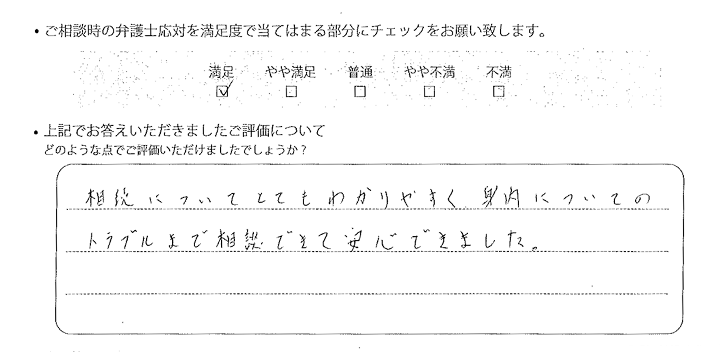 ・ご相談時の弁護士応対を満足度で当てはまる部分にチェックをお願い致します。
満足 やや満足 普通 やや不満 不満
☑ □ □ □ □
・上記でお答えいただきましたご評価について
どのような点でご評価いただけましたでしょうか？
相続についてとてもわかりやすく、身内についての
トラブルまで相談できて安心できました。